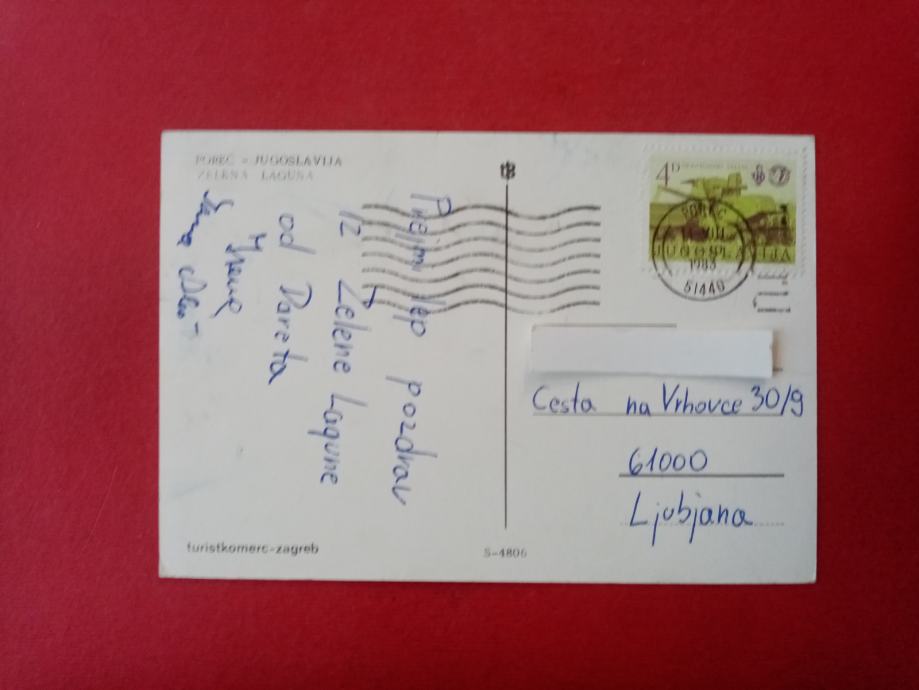 POREČ - JUGOSLAVIJA
ZELENA LAGUNA
Prejmi lep pozdrav
iz Zelene Lagune
od Dareta
Irene
4 D
POREČ
1983
51440
JUGOSLAVIJA
Cesta na Vrhovce 30/9
61000
Ljubjana
turistkomerc-zagreb
S-4806